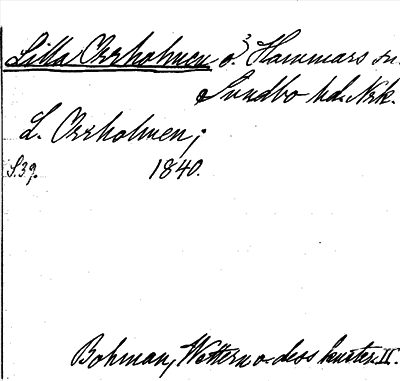 Lilla Orrholmen ö. Hammars sn.
Sundbo hd. Nrk.
L. Orrholmen;
S. 39. 1840.
Bohman, Wettern o. dess kuster. II.